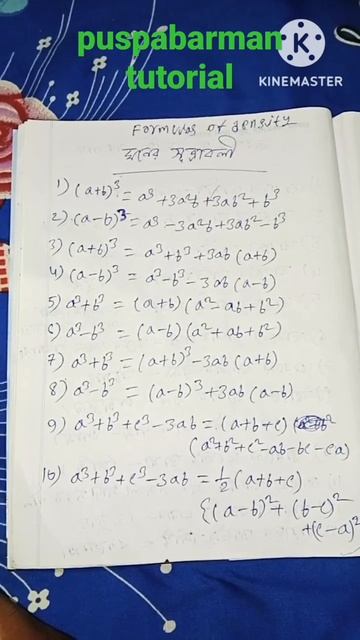 puspabarman
tutorial
KINEMASTER
Formulas of density
ঘনের সূত্রাবলী
1) (a+b)³ = a³ +3a²b +3ab² + b³
2) (a-b)³ = a³ - 3a²b +3ab² - b³
3) (a+b)³ = a³+b³ +3ab (a+b)
4) (a-b)³ = a³-b³ - 3ab (a-b)
5) a³+b³ = (a+b) (a²-ab+b²)
6) a³-b³ = (a-b) (a²+ab+b²)
7) a³+b³ = (a+b)³-3ab (a+b)
8) a³-b³ = (a-b)³+3ab (a-b)
9) a³+b³+c³-3ab = (a+b+c)
(a²+b²+c²-ab-bc-ca)
10) a³+b³+c³-3ab = ½ (a+b+c)
{(a-b)²+ (b-c)²
+(c-a)²